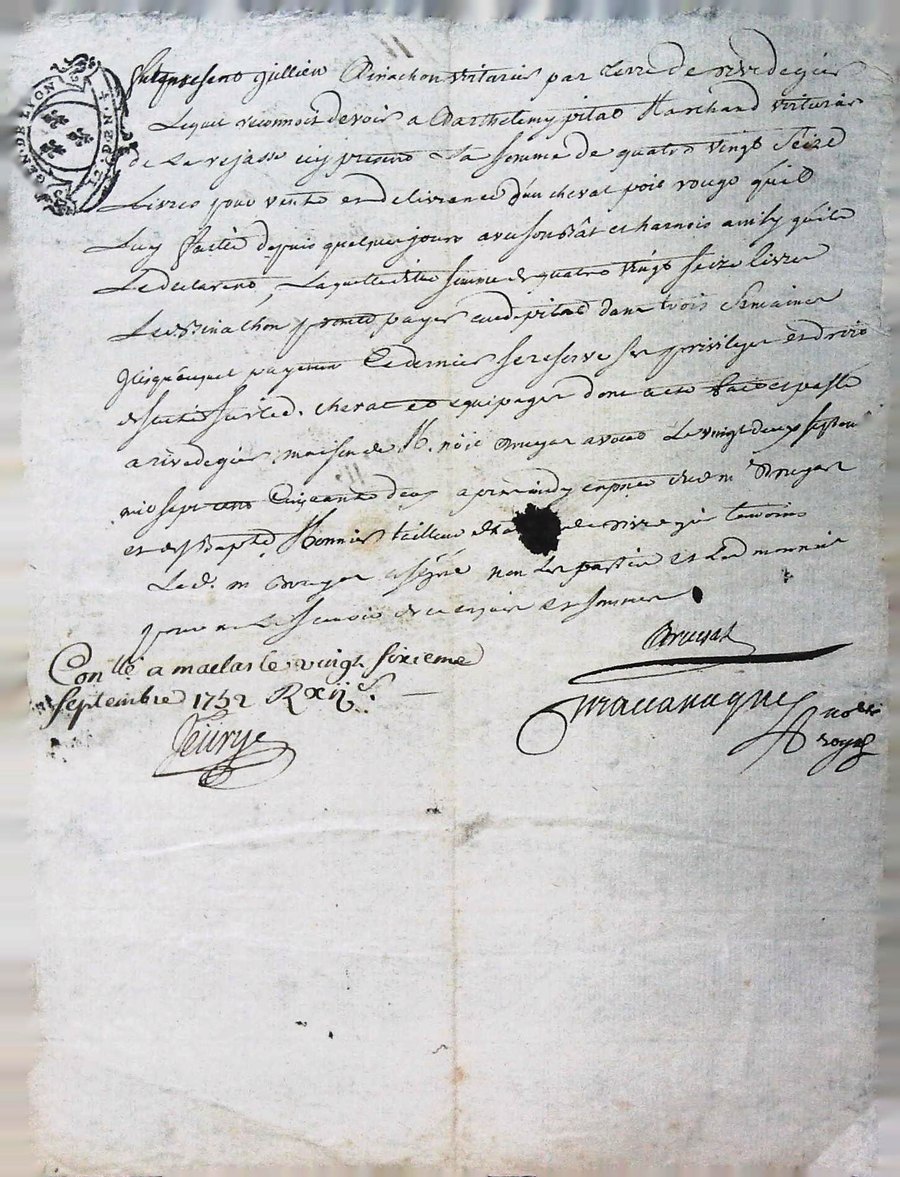 GEN. DE LYON
fut present jullien Binachon voiturier par terre de rivedegier
Lequel reconnoit devoir a Barthelemy pitad Marchand voiturier
de La rejasse icy present La somme de quatre vingt Seize
Livres pour vente et delivrance d'un cheval poil rouge qu'il
Luy faitte depuis quelques jours avec son Bât et harnois ainsy qu'ils
Le declarent, Laquelle ditte somme de quatre vingt seize livres
Led Binachon promet payer aud pitad dans trois Semaines
Jusqu'auquel payement Ce dernier se reserve ses privileges et droits
de suitte sur led. cheval et equipages dont acte fait et passé
a rivedegier maison de M. Bruyas avocat Le vingt deux septem
mil sept cent Cinquante deux apres midy en presence dud m Bruyas
et de Bapte Monnier tailleur de rivegier temoins
Led. m Bruyas a signé non Les parties et Led monnier
pour ne Le Scavoir de ce enquis et sommés
Bruyas
Conllé a maclas le vingt sixieme
Septembre 1752 R xii s.
notre
royal